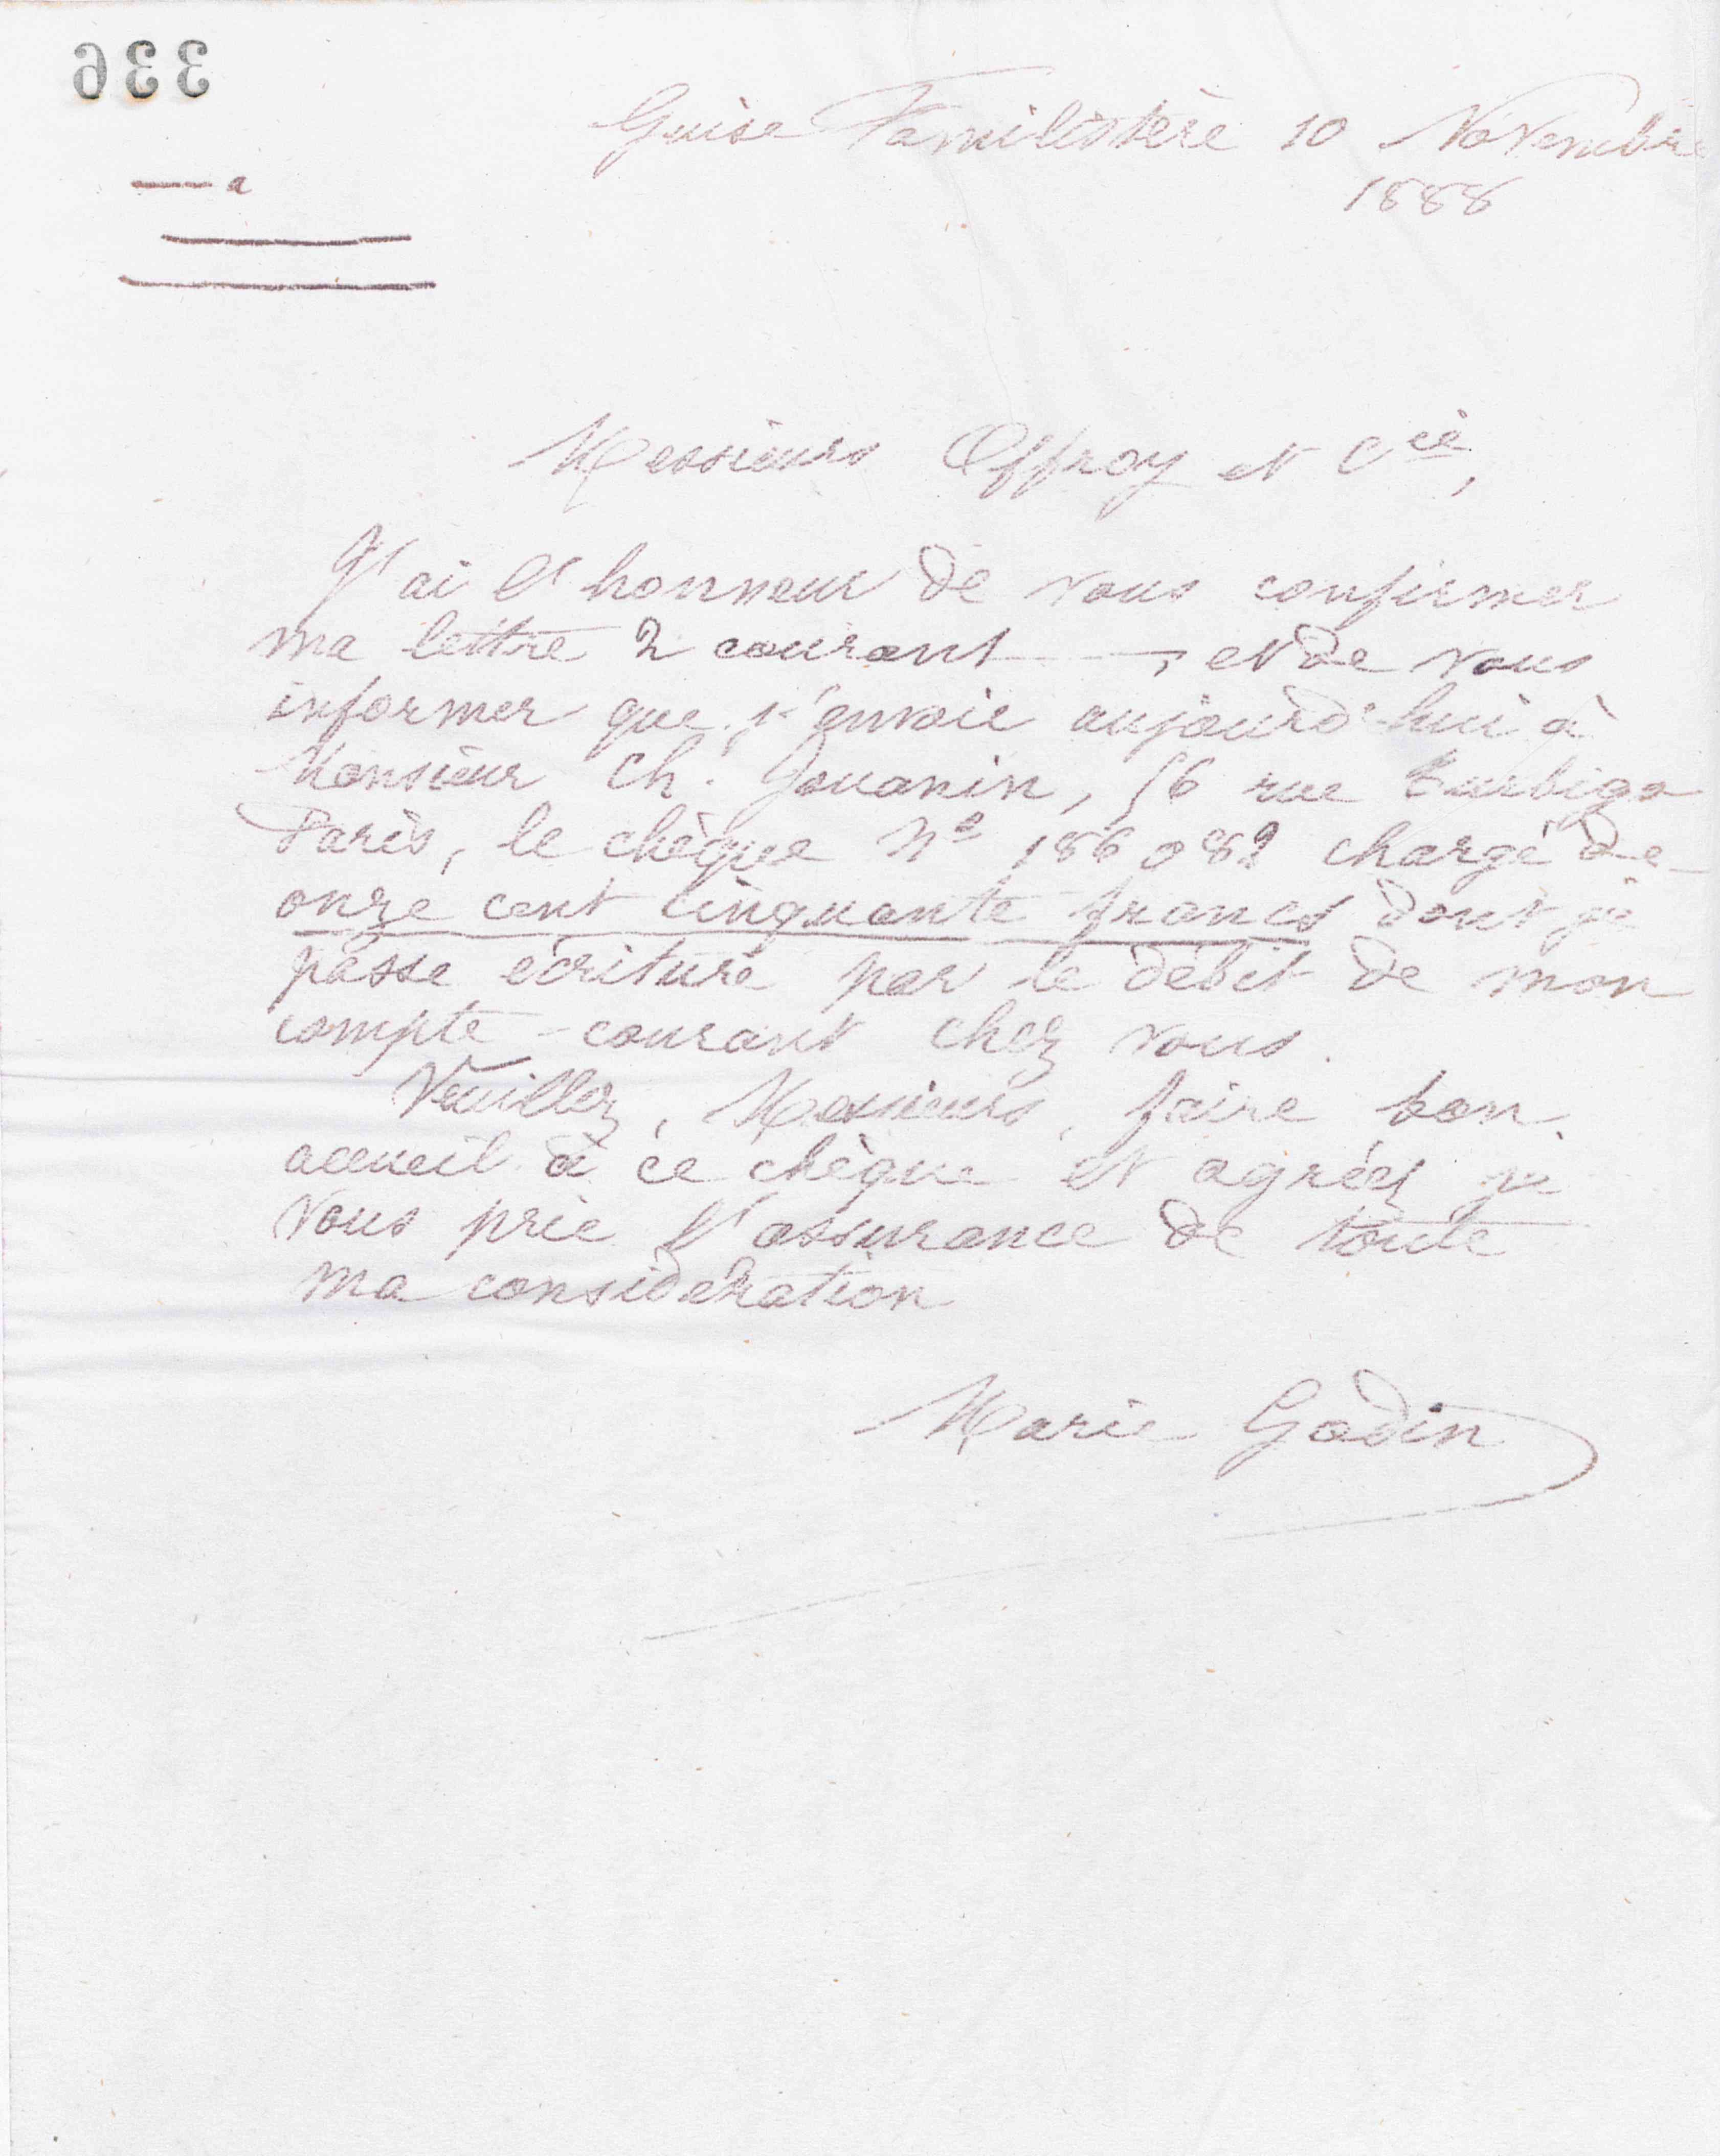 336
Guise Familistère 10 Novembre
1888
Messieurs Offroy et Cie,
J'ai l'honneur de vous confirmer
ma lettre 2 courant —, et de vous
informer que j'envoie aujourd'hui à
Monsieur Ch. Jouanin, 56 rue Turbigo
Paris, le chèque No 186082 chargé de
onze cent cinquante francs dont je
passe écriture par le débit de mon
compte-courant chez vous.
Veuillez, Messieurs, faire bon
accueil à ce chèque et agréez je
vous prie l'assurance de toute
ma considération
Marie Godin